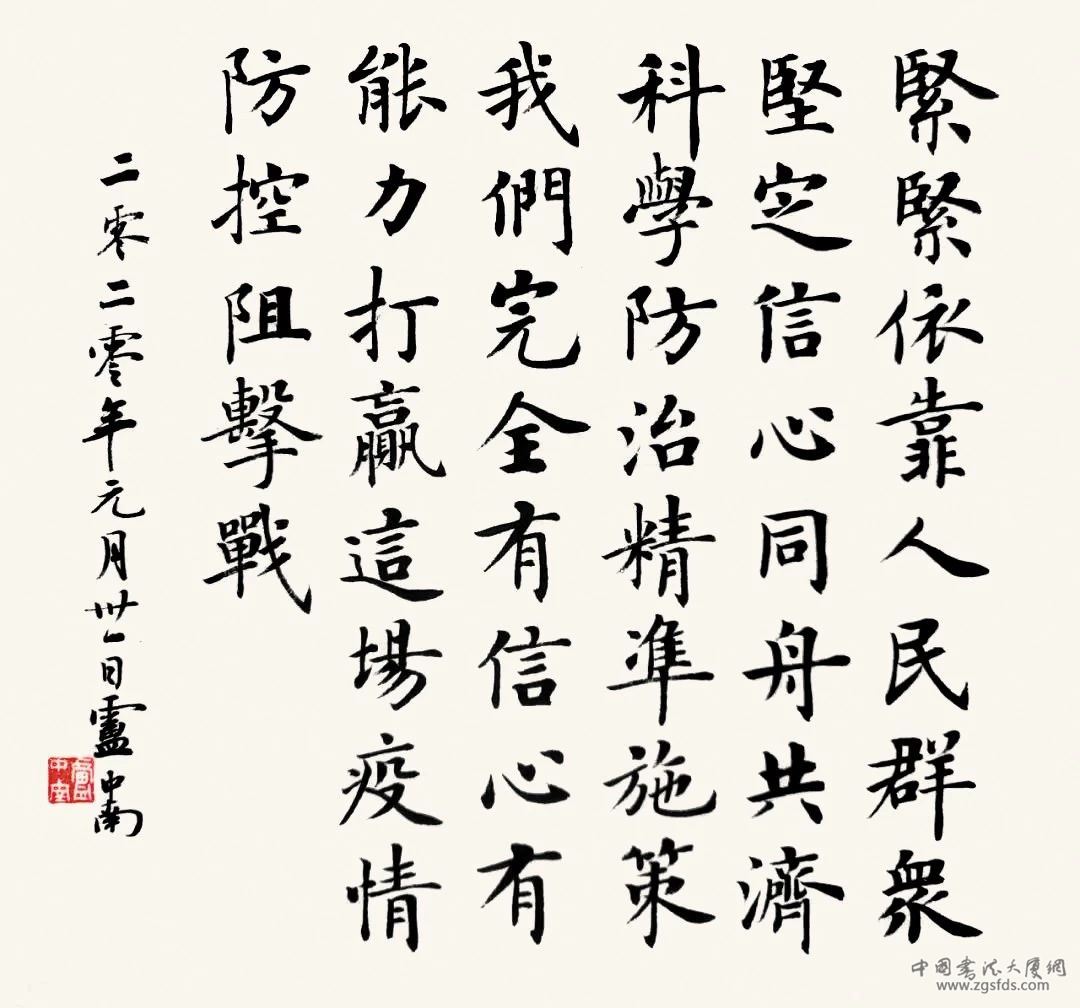 緊緊依靠人民群眾
堅定信心同舟共濟
科學防治精準施策
我們完全有信心有
能力打贏這場疫情
防控阻擊戰
二零二零年元月卅一日盧中南
盧中南
中国书法大厦網
www.zgsfds.com